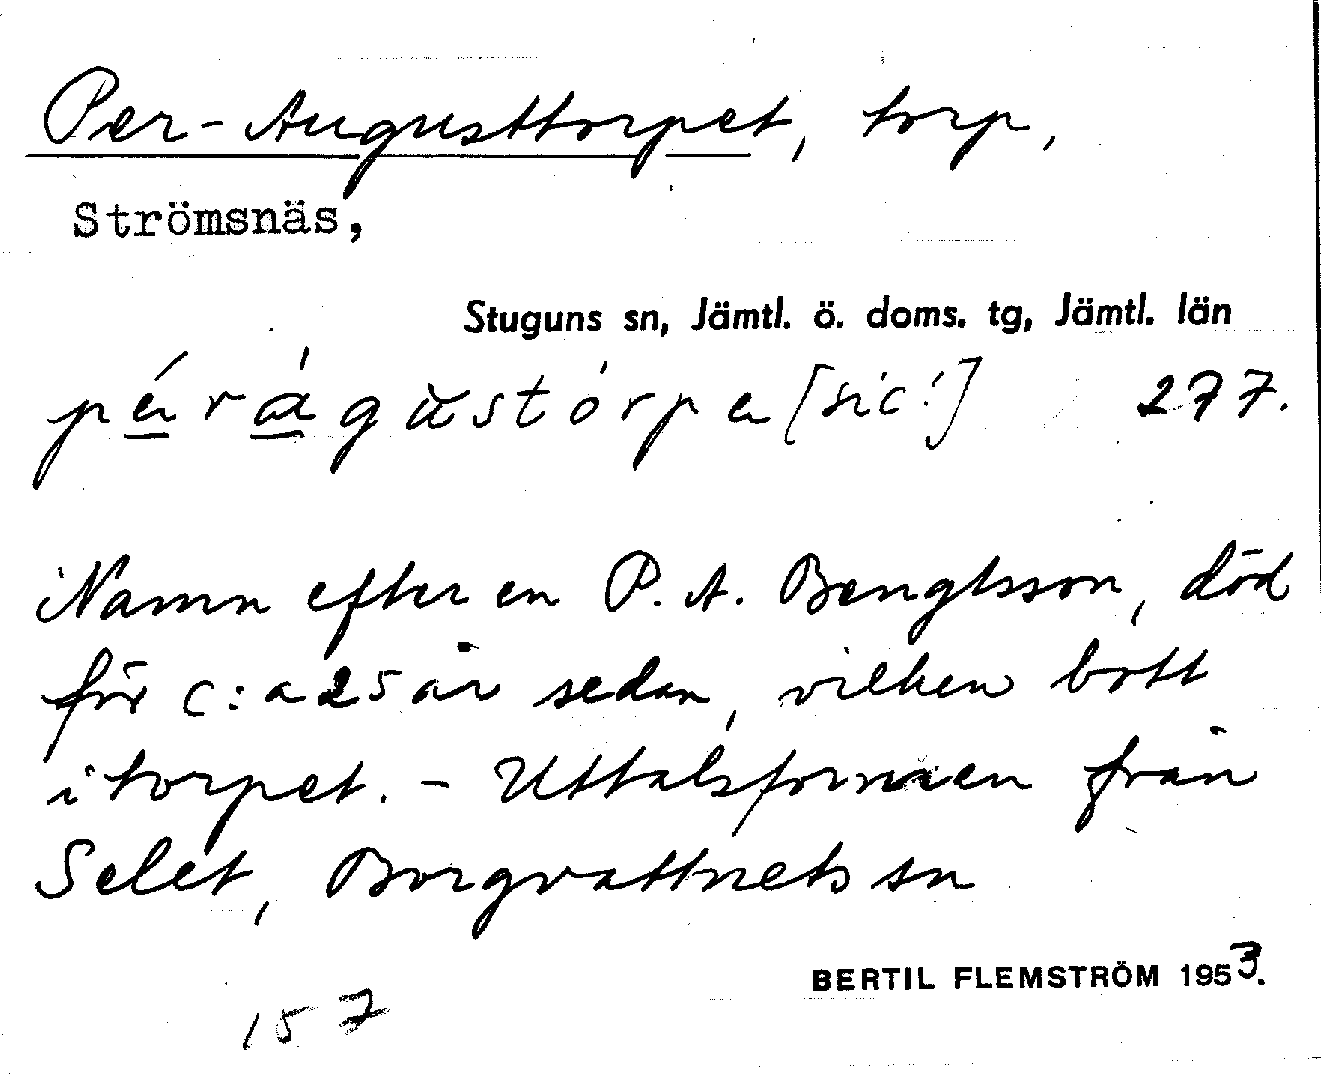 Per-Augusttorpet, torp,
Strömsnäs,
Stuguns sn, Jämtl. ö. doms. tg, Jämtl. län
pérágùstórpa [sic!] 277.
Namn efter en P. A. Bengtsson, död
för c:a 25 år sedan, vilken bott
i torpet. - Uttalsformen från
Selet, Borgvattnets sn
BERTIL FLEMSTRÖM 1953.
157